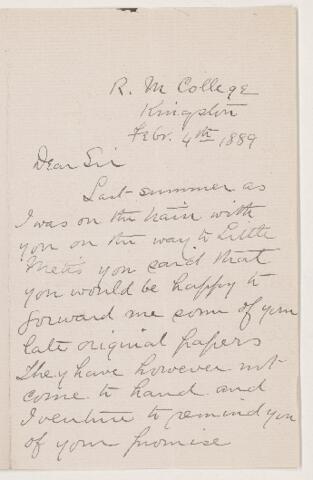 R. M College
Kingston
Febr. 4th 1889
Dear Sir
Last summer as
I was on the train with
you on the way to Little
Metis you said that
you would be happy to
forward me some of your
late original papers
They have however not
come to hand and
I venture to remind you
of your promise